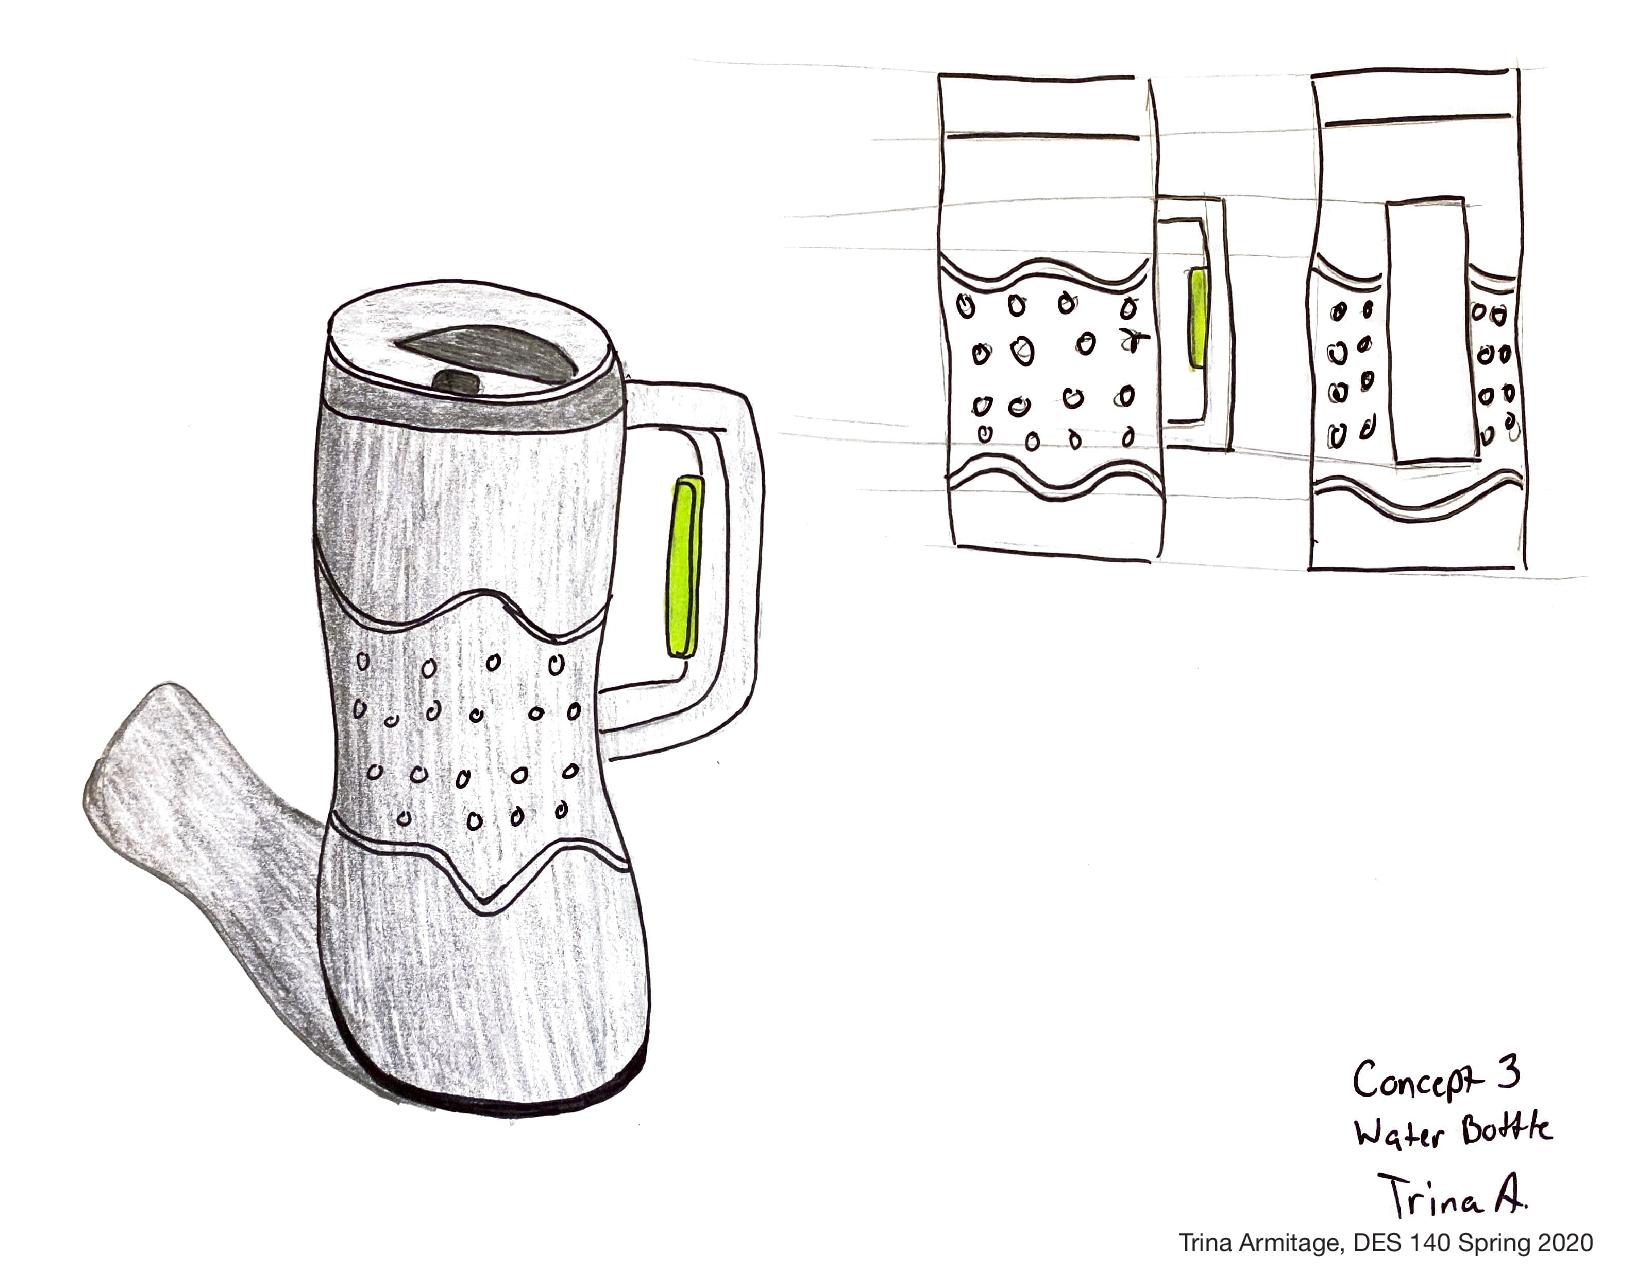 Concept 3
Water Bottle
Trina A.
Trina Armitage, DES 140 Spring 2020